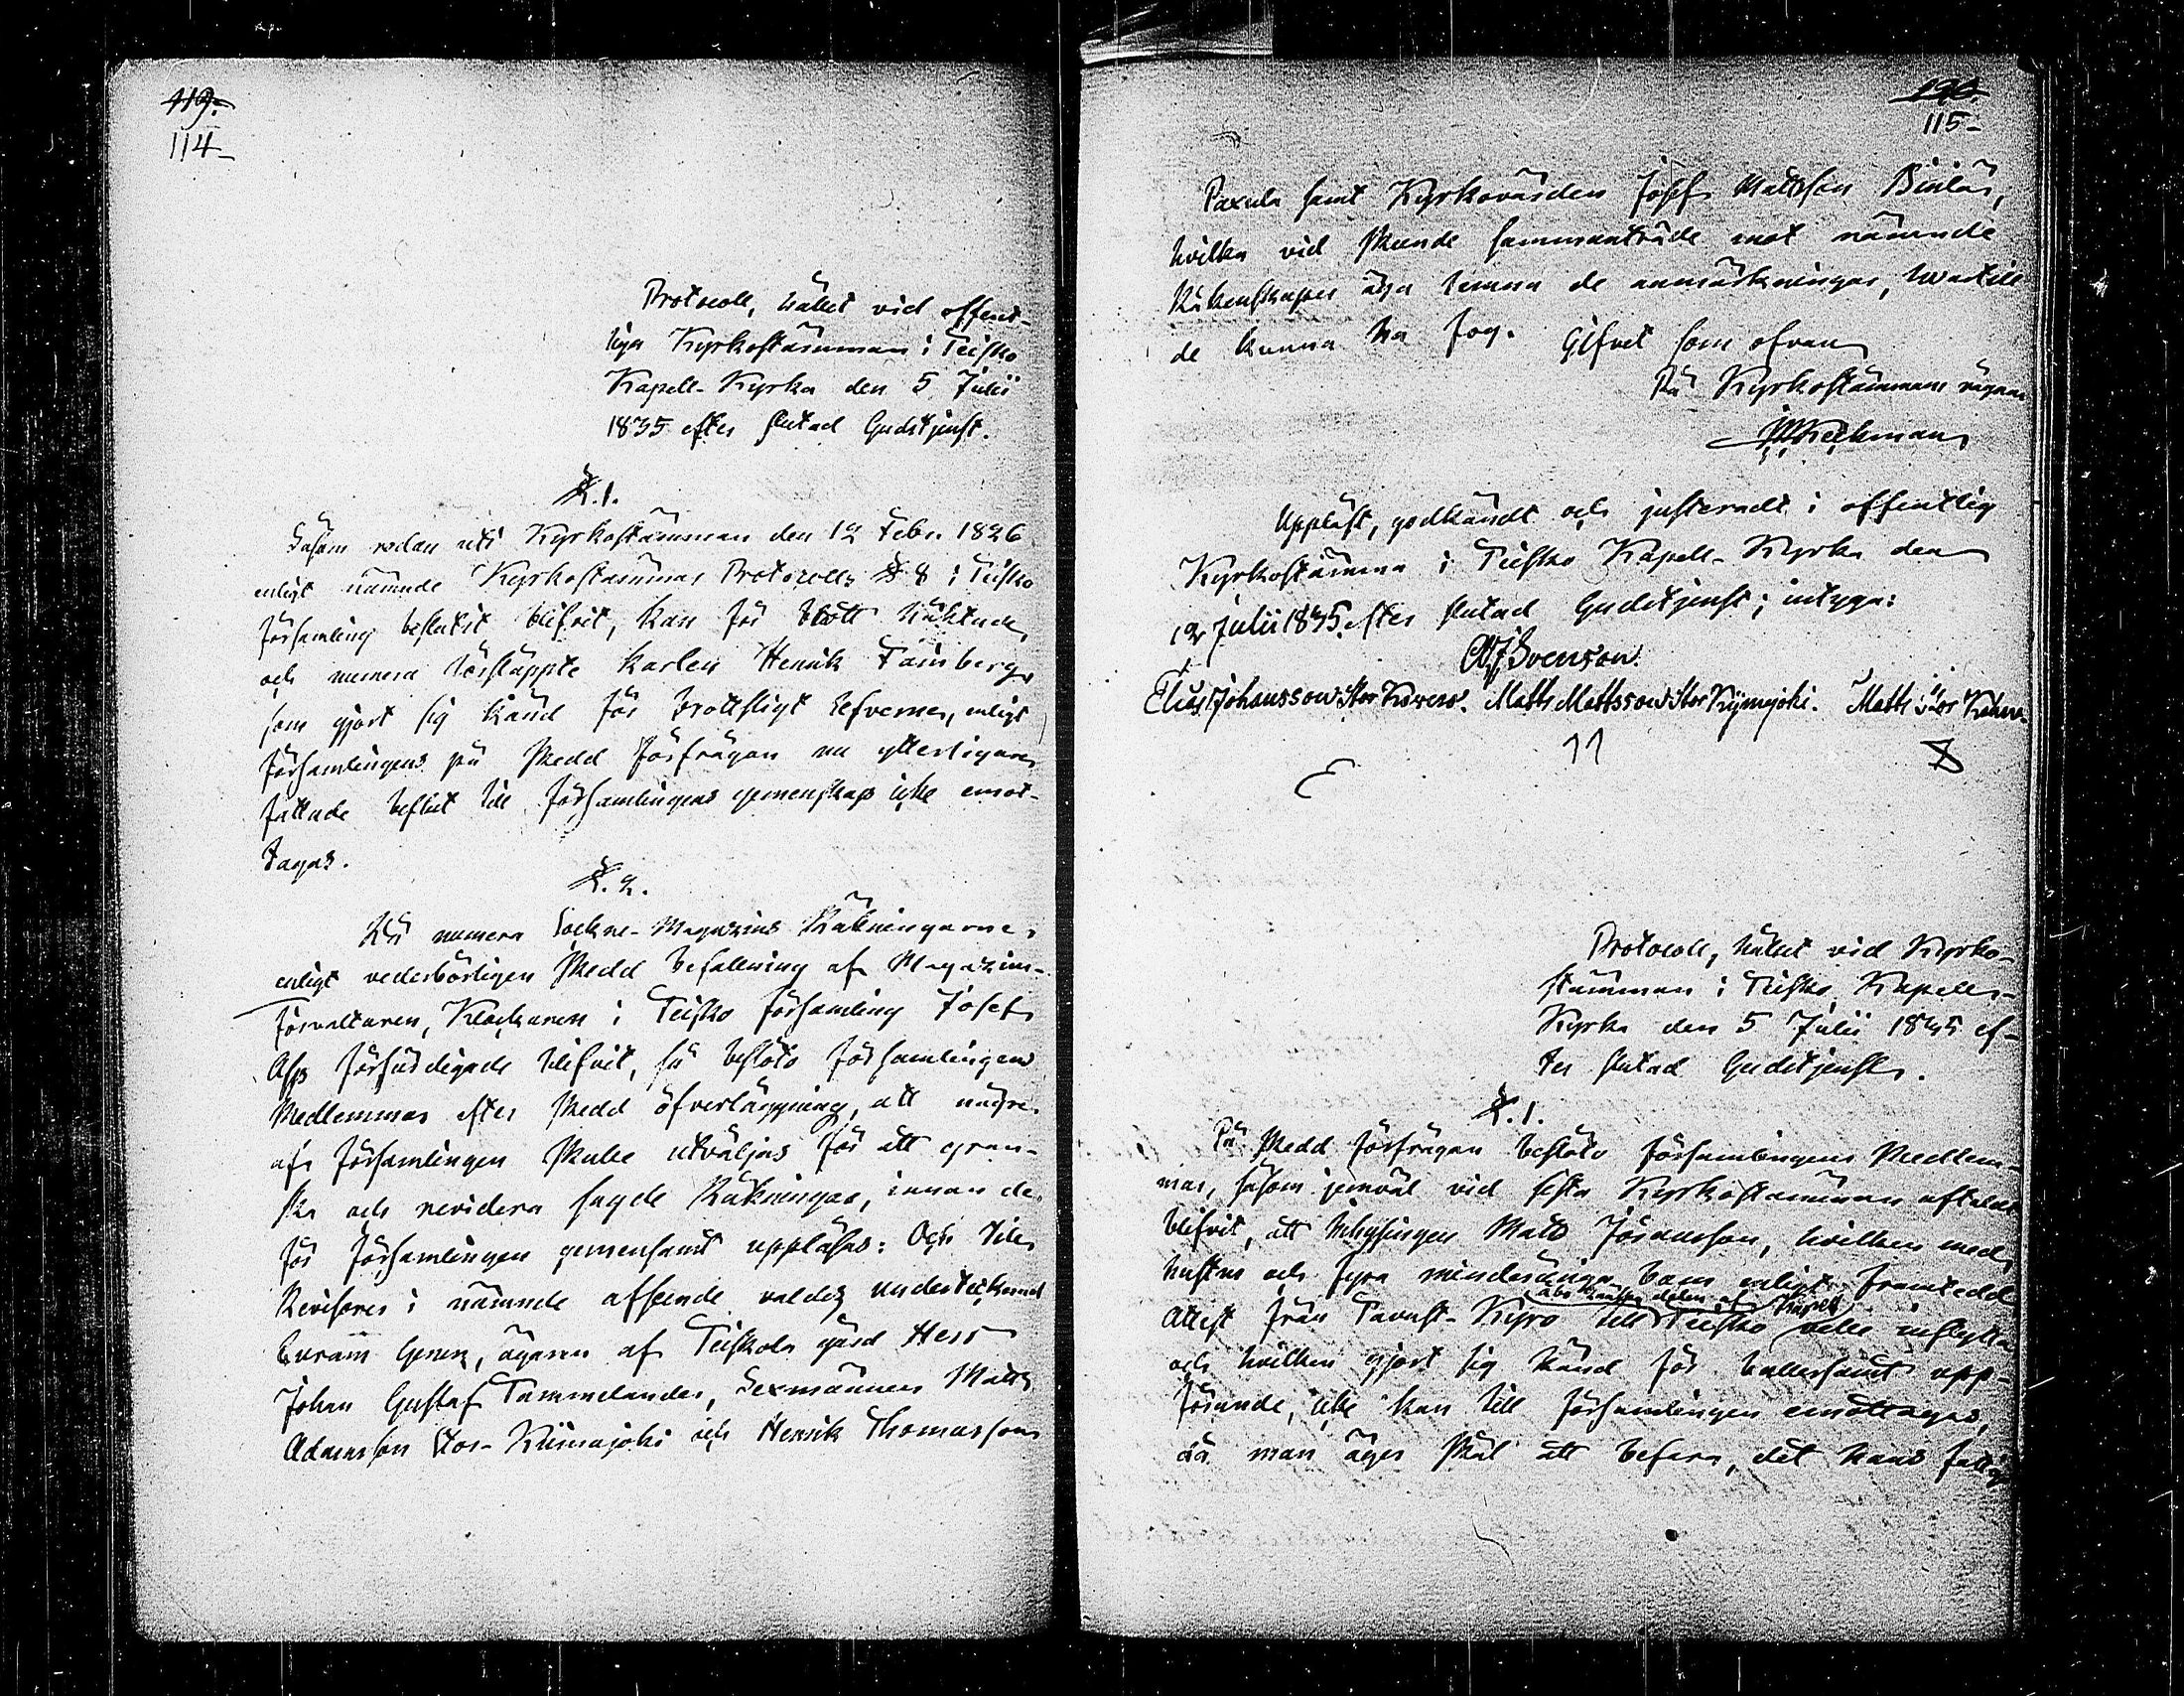 119.
114
Protocoll, hållit vid offent-
liga Kyrkostämman i Teisko
Kapell-Kyrka den 5 Julii
1835 efter slutad Gudstjenst.
§. 1.
Såsom redan uti Kyrkostämman den 12 Febr. 1826
enligt nämnde Kyrkostämmas Protocolls § 8 i Teisko
församling beslutit blifvit, kan för brott häktade
och numera lössläppte karlen Henrik Tamberg,
som gjort sig känd för brottsligt lefverne, enligt
församlingens på skedd förfrågan nu ytterligare
fattade beslut till församlingens gemenskap icke emot-
tagas.
§. 2.
Då numera Sockne-Magazins Räkningarne,
enligt vederbörligen skedd befallning af Magazins-
Förvaltaren, Klockaren i Teisko församling Josef
Asp förfärdigade blifvit, så beslöto församlingens
Medlemmar efter skedd öfverläggning, att någre
af församlingen skulle utväljas för att gran-
ska och revidera sagde Räkningar, innan de
för församlingen gemensamt uppläsas: Och till
Revisorer i nämnde afseende valdes undertecknad
ägaren af Teiskola gård Herr
Johan Gustaf Tammelander, Sexmännen Matts
Adamsson Stor-Kiimajoki och Henrik Thomasson
115
Paxula samt Kyrkovärden Josef Mattsson
hvilka vid skeende sammanträde mot nämnde
Räkenskaper äga lemna de anmärkningar, hwartill
de kunna ha fog. Gifvet som ofvan
På Kyrkostämmans vägnar
Uppläst, godkändt och justeradt i offentlig
Kyrkostämma i Teisko Kapell-Kyrka den
12 Julii 1835 efter slutad Gudstjenst; intyga:
Svenson
Elias Johansson Stor Kovero. Matts Mattsson Stor Kiimajoki. Matts Stor
Protocoll, hållit vid Kyrko-
stämman i Teisko Kapells-
Kyrka den 5 Julii 1835 ef-
ter slutad Gudstjenst.
§. 1.
På skedd förfrågan beslöto församlingens Medlem-
mar, såsom jemväl vid sista Kyrkostämman aftaladt
blifvit, att Inhysingen Matts Göransson, hvilken med
hustru och fyra minderåriga barn enligt framtedd
Åbo delen af Kapell
Attest från Tavast-Kyro till Teisko velle inflytta
och hvilken gjort sig känd för bullersamt upp-
förande, icke kan till församlingen emottagas,
då man äger skäl att befara, det hans